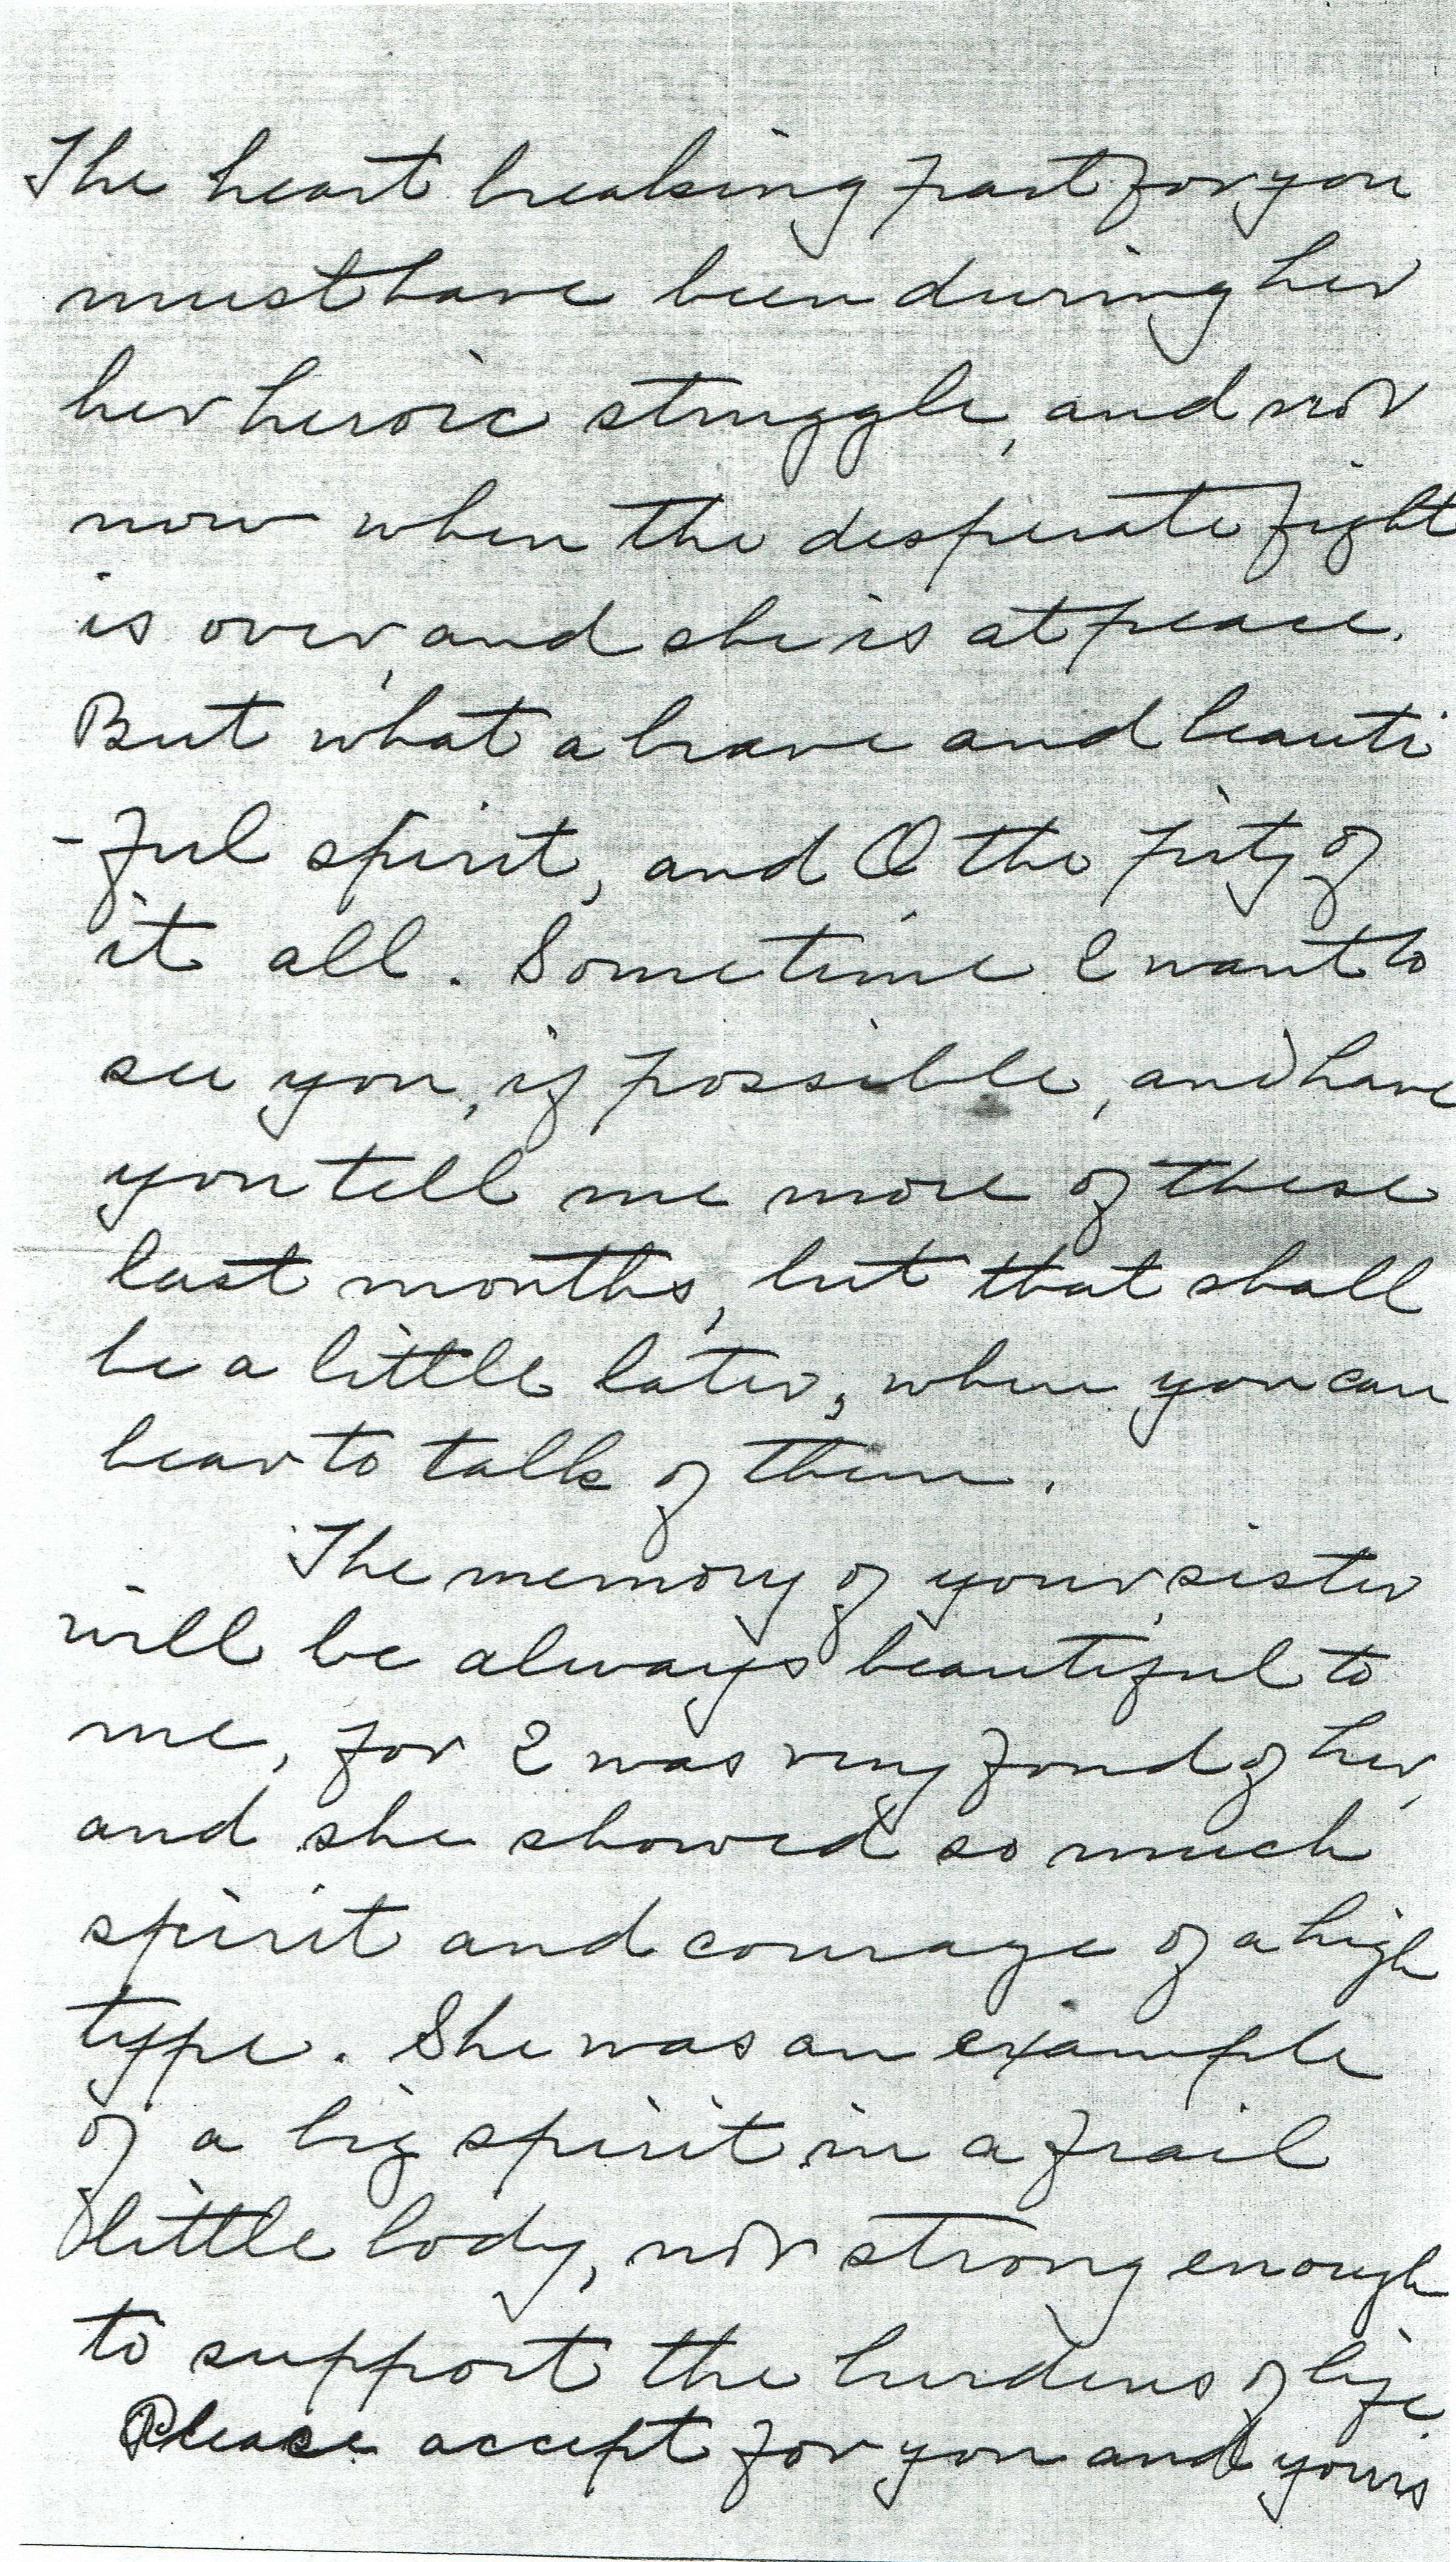 The heart breaking part for you
must have been during her
her heroic struggle, and not
now when the desperate fight
is over, and she is at peace.
But what a brave and beauti
-ful spirit, and O the pity of
it all. Sometime I want to
see you, if possible, and have
you tell me more of these
last months, but that shall
be a little later, when you can
bear to talk of them.
The memory of your sister
will be always beautiful to
me, for I was very fond of her,
and she showed so much
spirit and courage of a high
type. She was an example
of a big spirit in a frail
little body, not strong enough
to support the burdens of life.
Please accept for you and yours